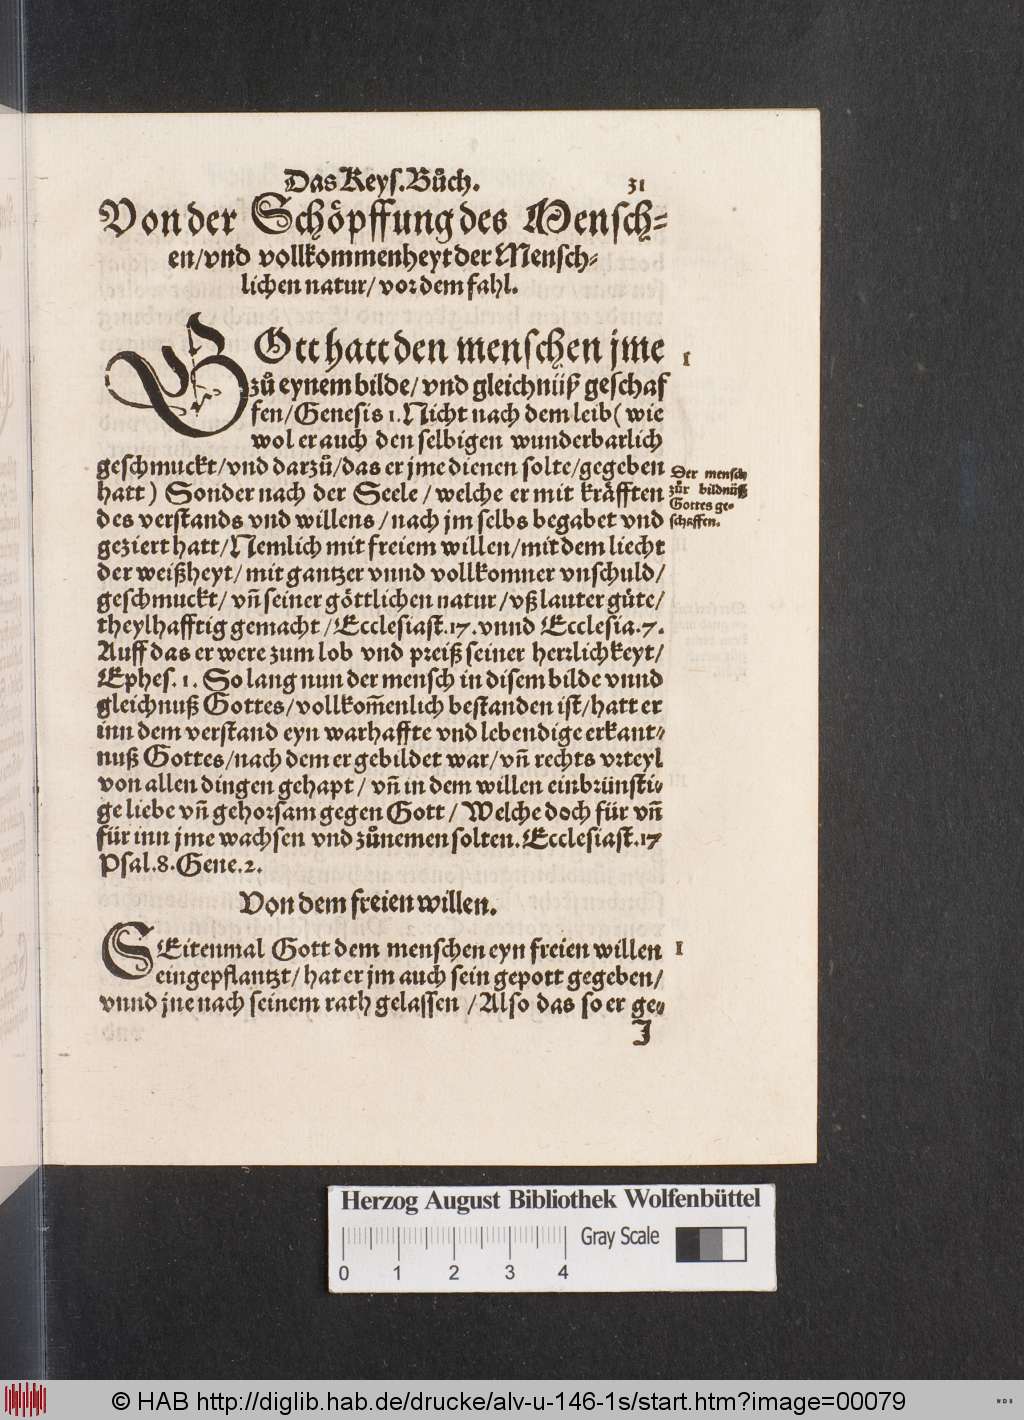 Das Keyſ. Bůch. 31
Von der Schöpffung des Menſch⸗
en/vnd vollkommenheyt der Menſch⸗
lichen natur/ vor dem fahl.
GOtt hatt den menſchen jme 1
zů eynem bilde/ vnd gleichnüß geſchaf
fen/Geneſis 1. Nicht nach dem leib (wie
wol er auch den ſelbigen wunderbarlich
geſchmuckt/vnd darzů/das er jme dienen ſolte/gegeben
hatt) Sonder nach der Seele/welche er mit kräfften
des verſtands vnd willens/nach jm ſelbs begabet vnd
geziert hatt/Nemlich mit freiem willen/mit dem liecht
der weißheyt/ mit gantzer vnnd vollkomner vnſchuld/
geſchmuckt/ vñ ſeiner göttlichen natur/vß lauter güte/
theylhafftig gemacht/Eccleſiaſt.17.vnnd Eccleſia.7.
Auff das er were zum lob vnd preiß ſeiner herrlichkeyt/
Epheſ. 1. So lang nun der menſch in diſem bilde vnnd
gleichnuß Gottes/vollkom̃enlich beſtanden iſt/hatt er
inn dem verſtand eyn warhaffte vnd lebendige erkant⸗
nuß Gottes/nach dem er gebildet war/vñ rechts vrteyl
von allen dingen gehapt/ vñ in dem willen einbrünſti⸗
ge liebe vñ gehorſam gegen Gott/ Welche doch für vñ
für inn jme wachſen vnd zůnemen ſolten. Eccleſiaſt.17
Pſal.8. Gene.2.
Der menſch
zůr bildnüß
Gottes ge⸗
ſchaffen.
Von dem freien willen.
SEitenmal Gott dem menſchen eyn freien willen 1
eingepflantzt/ hat er jm auch ſein gepott gegeben/
vnnd jne nach ſeinem rath gelaſſen /Alſo das ſo er ge⸗
J
Herzog August Bibliothek Wolfenbüttel
Gray Scale
0 1 2 3 4
© HAB http://diglib.hab.de/drucke/alv-u-146-1s/start.htm?image=00079